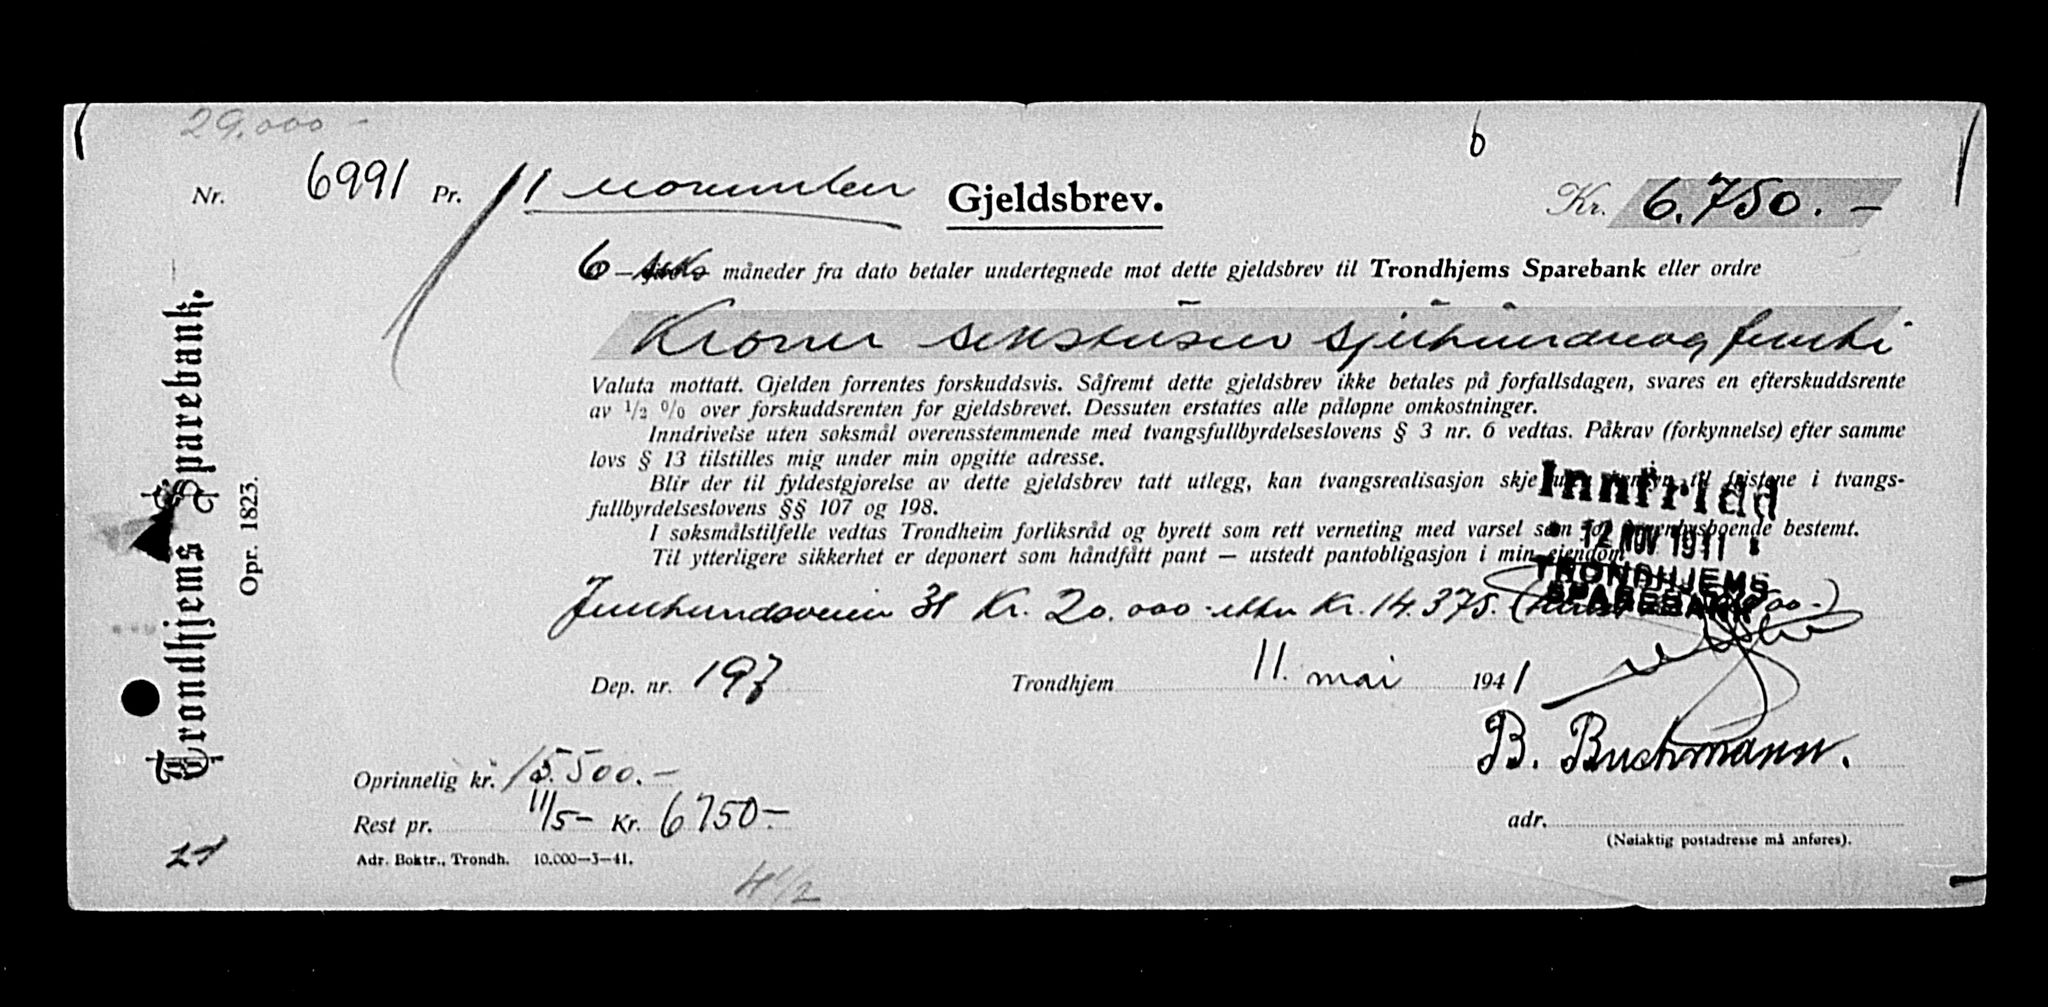 29.000 -
6
Nr. 6991 Pr. 11 november Gjeldsbrev. Kr. 6.750. -
6 - seks måneder fra dato betaler undertegnede mot dette gjeldsbrev til Trondhjems Sparebank eller ordre
Kroner sekstusen sjuhundreog femti
Valuta mottatt. Gjelden forrentes forskuddsvis. Såfremt dette gjeldsbrev ikke betales på forfallsdagen, svares en efterskuddsrente
av 1/2 % over forskuddsrenten for gjeldsbrevet. Dessuten erstattes alle påløpne omkostninger.
Inndrivelse uten søksmål overensstemmende med tvangsfullbyrdelseslovens § 3 nr. 6 vedtas. Påkrav (forkynnelse) efter samme
lovs § 13 tilstilles mig under min opgitte adresse.
Blir der til fyldestgjørelse av dette gjeldsbrev tatt utlegg, kan tvangsrealisasjon skje uten hensyn til fristene i tvangs-
fullbyrdelseslovens §§ 107 og 198.
I søksmålstilfelle vedtas Trondheim forliksråd og byrett som rett verneting med varsel som for innenbysboende bestemt.
Til ytterligere sikkerhet er deponert som håndfått pant — utstedt pantobligasjon i min eiendom
Innfridd
12 NOV 1941
TRONDHJEMS
SPAREBANK
31 Kr. 20.000 - etter Kr. 14.375.
Dep. nr. 197 Trondhjem 11. mai 1941
B. Buchmann.
Oprinnelig kr. 15.500. -
Rest pr. 11/5 - Kr. 6750 -
adr.
(Nøiaktig postadresse må anføres).
Adr. Boktr., Trondh. 10.000—3—41.
4 1/2
Trondhjems Sparebank.
Opr. 1823.